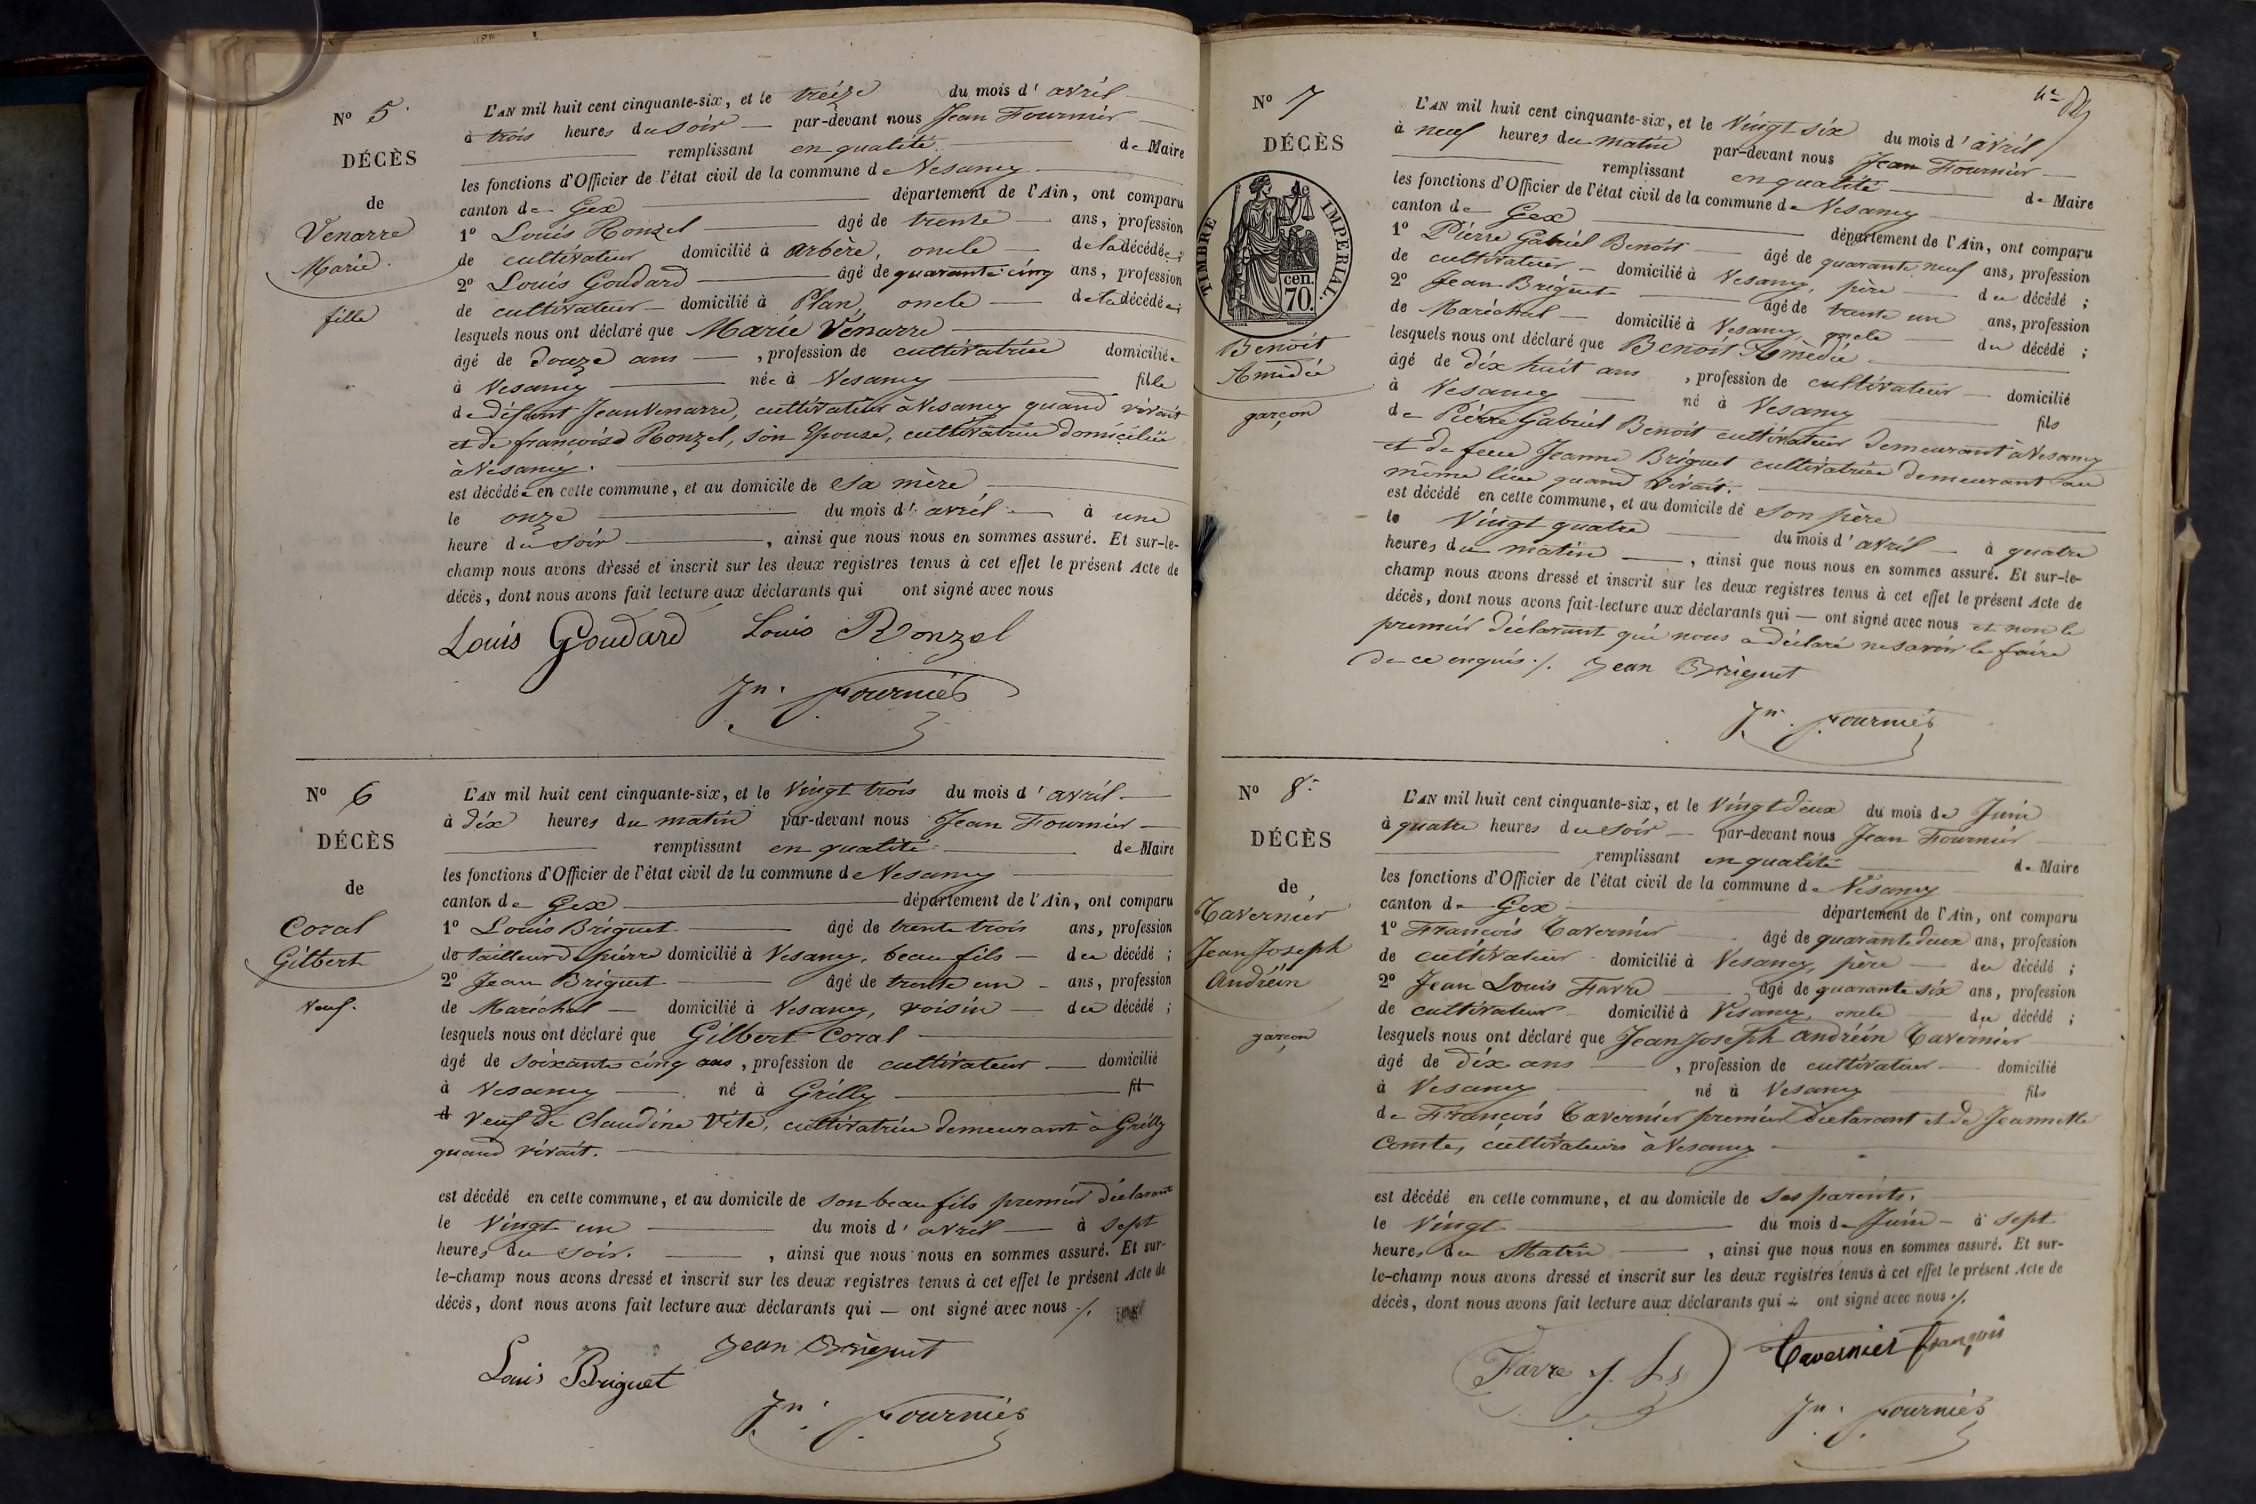 N° 5.
DÉCÈS
de
Venarre
Marie.
fille
L'AN mil huit cent cinquante-six, et le treize du mois d'avril
à trois heures du soir par-devant nous Jean Fournier
remplissant en qualité de Maire
les fonctions d'Officier de l'état civil de la commune de Vesancy
canton de Gex département de l'Ain, ont comparu
1° Louis Ronzel âgé de trente ans, profession
de cultivateur domicilié à arbère, oncle de la décédée;
2° Louis Goudard âgé de quarante-cinq ans, profession
de cultivateur domicilié à Plan, oncle de la décédée;
lesquels nous ont déclaré que Marie Venarre
âgé de douze ans, profession de cultivatrice domiciliée
à Vesancy née à Vesancy fille
de défunt Jean Venarre, cultivateur à Vesancy quand vivait
et de françoise Ronzel, son épouse, cultivatrice domiciliée
à Vesancy.
est décédée en cette commune, et au domicile de sa mère
le onze du mois d'avril à une
heure du soir, ainsi que nous nous en sommes assuré. Et sur-le-
champ nous avons dressé et inscrit sur les deux registres tenus à cet effet le présent Acte de
décès, dont nous avons fait lecture aux déclarants qui ont signé avec nous
Louis Goudard Louis Ronzel
Jn. Fournier
N° 6
DÉCÈS
de
Coral
Gilbert
Veuf.
L'AN mil huit cent cinquante-six, et le Vingt trois du mois d'avril
à dix heures du matin par-devant nous Jean Fournier
remplissant en qualité de Maire
les fonctions d'Officier de l'état civil de la commune de Vesancy
canton de Gex département de l'Ain, ont comparu
1° Louis Briguet âgé de trente trois ans, profession
de tailleur de pierre domicilié à Vesancy, beau fils du décédé;
2° Jean Briguet âgé de trente un ans, profession
de Maréchal domicilié à Vesancy, voisin du décédé;
lesquels nous ont déclaré que Gilbert Coral
âgé de soixante cinq ans, profession de cultivateur domicilié
à Vesancy né à Grilly fil
d Veuf de Claudine Vite, cultivatrice demeurant à Grilly
quand vivait.
est décédé en cette commune, et au domicile de son beau fils premier déclarant
le Vingt un du mois d'avril à sept
heures du soir., ainsi que nous nous en sommes assuré. Et sur-
le-champ nous avons dressé et inscrit sur les deux registres tenus à cet effet le présent Acte de
décès, dont nous avons fait lecture aux déclarants qui ont signé avec nous ./.
Jean Briguet
Louis Briguet
Jn. Fournier
N° 7
DÉCÈS
de
TIMBRE IMPERIAL.
cen.
70.
Benoit
Amédée
garçon
L'AN mil huit cent cinquante-six, et le Vingt six du mois d'avril
à neuf heures du matin par-devant nous Jean Fournier
remplissant en qualité de Maire
les fonctions d'Officier de l'état civil de la commune de Vesancy
canton de Gex département de l'Ain, ont comparu
1° Pierre Gabriel Benoit âgé de quarante neuf ans, profession
de cultivateur domicilié à Vesancy, père du décédé;
2° Jean Briguet âgé de trente un ans, profession
de Maréchal domicilié à Vesancy, oncle du décédé;
lesquels nous ont déclaré que Benoit Amédée
âgé de dix huit ans, profession de cultivateur domicilié
à Vesancy né à Vesancy fils
de Pierre Gabriel Benoit cultivateur demeurant à Vesancy
et de feue Jeanne Briguet cultivatrice demeurant au
même lieu quand vivait.
est décédé en cette commune, et au domicile de son père
le Vingt quatre du mois d'avril à quatre
heures du matin, ainsi que nous nous en sommes assuré. Et sur-le-
champ nous avons dressé et inscrit sur les deux registres tenus à cet effet le présent Acte de
décès, dont nous avons fait lecture aux déclarants qui ont signé avec nous et non le
premier déclarant qui nous a déclaré ne savoir le faire
de ce enquis ./. Jean Briguet
Jn. Fournier
N° 8.
DÉCÈS
de
Tavernier
Jean Joseph
Andréin
garçon
L'AN mil huit cent cinquante-six, et le Vingt deux du mois de Juin
à quatre heures du soir par-devant nous Jean Fournier
remplissant en qualité de Maire
les fonctions d'Officier de l'état civil de la commune de Vésancy
canton de Gex département de l'Ain, ont comparu
1° François Tavernier âgé de quarante deux ans, profession
de cultivateur domicilié à Vesancy, père du décédé;
2° Jean Louis Favre âgé de quarante six ans, profession
de cultivateur domicilié à Vesancy, oncle du décédé;
lesquels nous ont déclaré que Jean Joseph andréin Tavernier
âgé de dix ans, profession de cultivateur domicilié
à Vesancy né à Vesancy fils
de François Tavernier premier déclarant et de Jeannette
Comte, cultivateurs à Vesancy
est décédé en cette commune, et au domicile de ses parents.
le Vingt du mois de Juin à sept
heures du Matin, ainsi que nous nous en sommes assuré. Et sur-
le-champ nous avons dressé et inscrit sur les deux registres tenus à cet effet le présent Acte de
décès, dont nous avons fait lecture aux déclarants qui ont signé avec nous ./.
Favre J. Ls Tavernier françois
Jn. Fournier